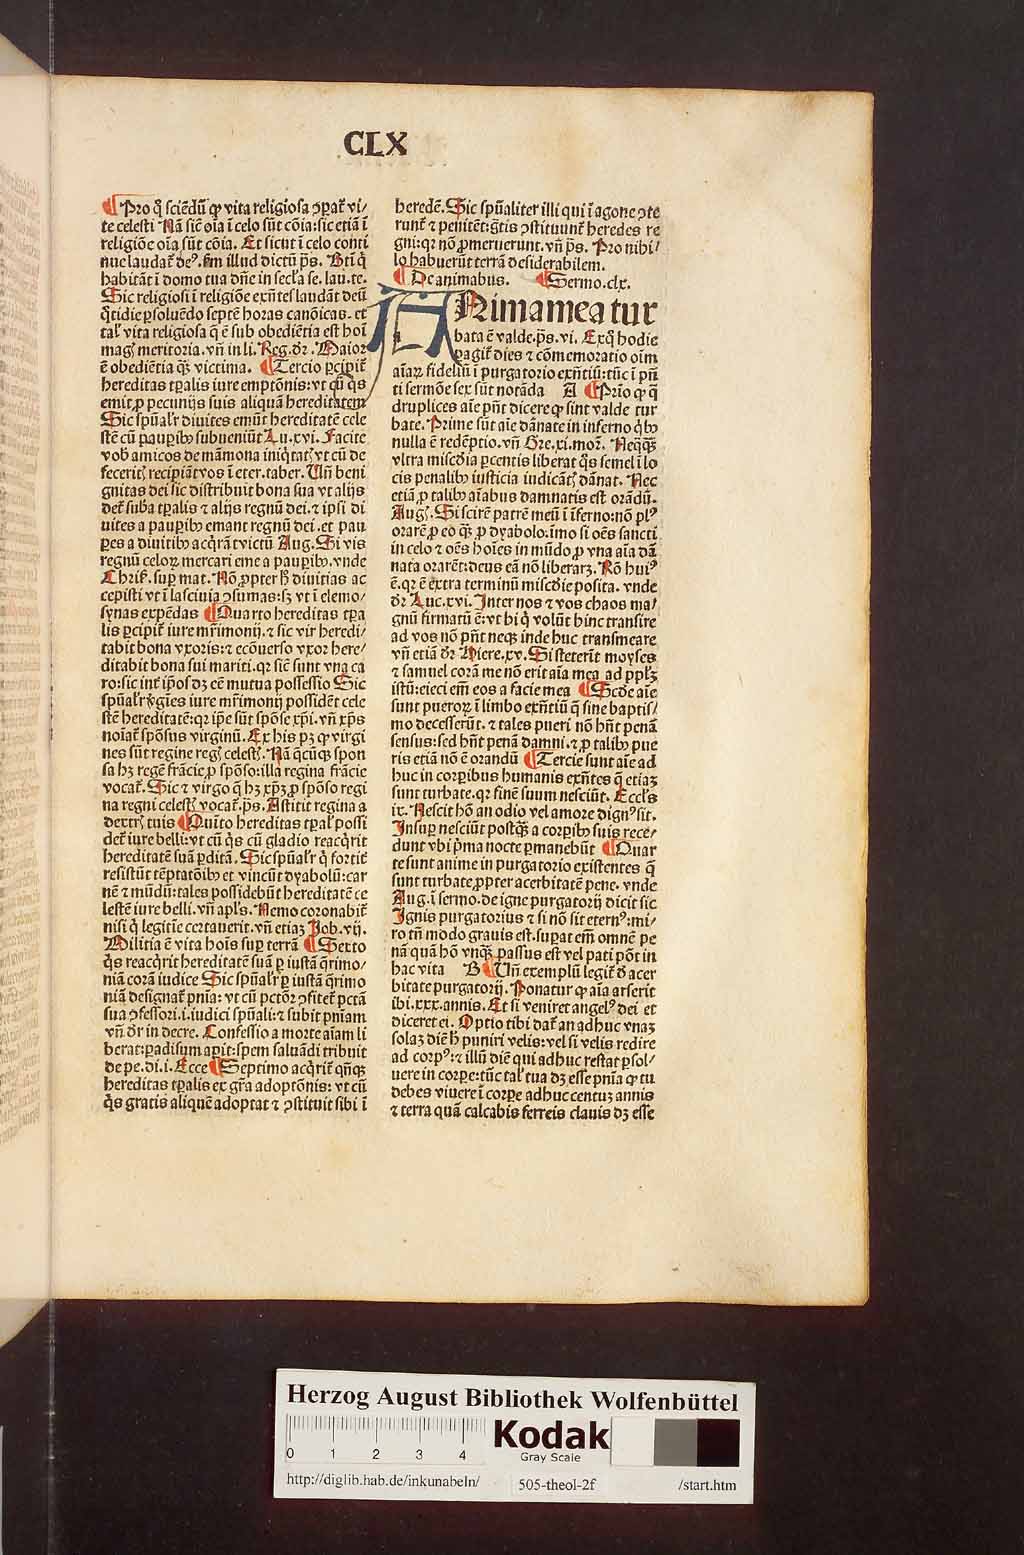 CLX
¶Pro q̄ sciēdū ꝙ vita religiosa ↄꝑat̄ vi/
te celesti Nā sic̄ oīa ī celo sūt cōia: sic etiā ī
religiōe oīa sūt cōia. Et sicut ī celo conti
nue laudat̄ deꝰ. fm illud dictū p̄s. Bt̄i q̄
habitāt ī domo tua dn̄e in secl̄a se. lau. te.
Sic religiosi ī religiōe exn̄tes laudāt deū
q̄tidie ꝑsoluēdo septē horas canōicas. et
tal̄ vita religiosa q̄ ē sub obediētia est hoī
magꝭ meritoria. vn̄ in li. Reg. dr̄. Maior
ē obediētia qꝫ victima. ¶Tercio ꝑcipit̄
hereditas tꝑalis iure emptōnis: vt qn̄ q̄s
emit ꝓ pecunijs suis aliquā hereditatem
Sic spūal̄r diuites emūt hereditatē cele
stē cū pauꝑibꝫ subueniūt Lu. xvi. Facite
vob̄ amicos de māmona iniq̄tatꝭ vt cū de
fecerit̄ recipiāt vos ī eter. taber. Vn̄ beni
gnitas dei sic distribuit bona sua vt alijs
det̄ suba tꝑalis ⁊ alijs regnū dei. ⁊ ipsi di
uites a pauꝑibꝫ emant regnū dei. et pau
ꝑes a diuitibꝫ acq̄rāt victū Aug. Si vis
regnū celoꝝ mercari eme a pauꝑibꝫ. vnde
Chris̄. suꝑ mat. Nō ꝓpter h̄ diuitias ac
cepisti vt ī lasciuia ↄsumas: sꝫ vt ī elemo/
synas expēdas ¶Quarto hereditas tꝑa
lis ꝑcipit̄ iure mr̄imonij. ⁊ sic vir heredi/
tabit bona vxoris: ⁊ ecōuerso vxor here/
ditabit bona sui mariti. qr̄ sic̄ sunt vna ca
ro: sic int̄ ip̄os dꝫ eē mutua possessio Sic
spūal̄r v̄gīes iure mr̄imonij possidēt cele
stē hereditatē: qr̄ ip̄e sūt spōse xp̄i. vn̄ xp̄s
noīat̄ spōsus virginū. Ex his pꝫ ꝙ virgi
nes sūt regine regꝭ celestꝭ. Nā q̄cūqꝫ spon
sa hꝫ regē frācie ꝓ spōso: illa regina frācie
vocat̄. Sic ⁊ virgo q̄ hꝫ xp̄ꝫ ꝓ spōso regi
na regni celestꝭ vocat̄. p̄s. Astitit regina a
dextrꝭ tuis ¶Quīto hereditas tꝑal̄ possi
det̄ iure belli: vt cū q̄s cū gladio reacq̄rit
hereditatē suā ꝑditā. Sic spūal̄r q̄ fortit̄
resistūt tēptatōibꝫ et vincūt dyabolū: car
nē ⁊ mūdū: tales possidebūt hereditatē ce
lestē iure belli. vn̄ apl̄s. Nemo coronabit̄
nisi q̄ legitīe certauerit. vn̄ etiaꝫ Job. vij.
Militia ē vita hoīs suꝑ terrā ¶Sexto
q̄s reacq̄rit hereditatē suā ꝑ iustā q̄rimo/
niā corā iudice Sic spūal̄r ꝑ iustā q̄rimo
niā designat̄ pn̄ia: vt cū pctōr ↄfitet̄ pctā
sua ↄfessori. i. iudici spūali: ⁊ subit pn̄iam
vn̄ dr̄ in decre. Confessio a morte aīam li
berat: ꝑadisum aꝑit: spem saluādi tribuit
de pe. di. i. Ecce ¶Septimo acq̄rit̄ qn̄qꝫ
hereditas tꝑalis ex gr̄a adoptōnis: vt cū
q̄s gratis aliquē adoptat ⁊ ↄstituit sibi ī
heredē. Sic spūaliter illi qui ī agone ↄte
runt̄ ⁊ penitēt: gr̄tis ↄstituunt̄ heredes re
gni: qr̄ nō ꝓmeruerunt. vn̄ p̄s. Pro nihi/
lo habuerūt terrā desiderabilem.
¶De animabus. ¶Sermo. clx.
ANima mea tur
bata ē valde. p̄s. vi. Ex q̄ hodie
ꝑagit̄ dies ⁊ cōmemoratio oīm
aīaꝝ fideliū ī purgatorio exn̄tiū: tūc ī pn̄
ti sermōe sex sūt notāda A ¶Prīo ꝙ q̄
druplices aīe pn̄t dicere ꝙ sint valde tur
bate. Prime sūt aīe dānate in inferno q̄bꝫ
nulla ē redēptio. vn̄ Gre. xi. mor̄. Neqꝫqꝫ
vltra misc̄dia ꝑcentis liberat q̄s semel ī lo
cis penalibꝫ iusticia iudicātꝭ dānat. Nec
etiā ꝓ talibꝫ aīabus damnatis est orādū.
Augꝭ. Si scirē patrē meū ī īferno: nō plꝰ
orarē ꝓ eo qꝫ ꝓ dyabolo: īmo si oēs sancti
in celo ⁊ oēs hoīes in mūdo ꝓ vna aīa dā
nata orarēt: deus eā nō liberarꝫ. Rō huiꝰ
ē. qr̄ ē extra terminū misc̄die posita. vnde
dr̄ Luc. xvi. Inter nos ⁊ vos chaos ma/
gnū firmatū ē: vt hi q̄ volūt hinc transire
ad vos nō pn̄t neqꝫ inde huc transmeare
vn̄ etiā dr̄ Hiere. xv. Si steterīt moyses
⁊ samuel corā me nō erit aīa mea ad pplꝫ
istū: eieci em̄ eos a facie mea ¶Scd̄e aīe
sunt pueroꝝ ī limbo exn̄tiū q̄ sine baptis/
mo decesserūt. ⁊ tales pueri nō hn̄t penā
sensus: sed hn̄t penā damni. ⁊ ꝓ talibꝫ pue
ris etiā nō ē orandū ¶Tercie sunt aīe ad
huc in corꝑibus humanis exn̄tes q̄ etiaꝫ
sunt turbate. qr̄ finē suum nesciūt. Eccl̄s
ix. Nescit hō an odio vel amore dignꝰ sit.
Insuꝑ nesciūt postqꝫ a corꝑibꝫ suis rece/
dunt vbi p̄ma nocte ꝑmanebūt ¶Quar
te sunt anime in purgatorio existentes q̄
sunt turbate ꝓpter acerbitatē pene. vnde
Aug. ī sermo. de igne purgatorij dicit sic
Ignis purgatorius ⁊ si nō sit eternꝰ: mi/
ro tn̄ modo grauis est. suꝑat em̄ omnē pe
nā quā hō vnqꝫ passus est vel pati pōt in
hac vita B ¶Vn̄ exemplū legit̄ d̄ acer
bitate purgatorij. Ponatur ꝙ aīa arserit
ibi. xxx. annis. Et si veniret angelꝰ dei et
diceret ei. Optio tibi dat̄ an adhuc vnaꝫ
solaꝫ diē h̄ puniri velis: vel si velis redire
ad corpꝰ: ⁊ illū diē qui adhuc restat ꝑsol/
uere in corꝑe: tūc tal̄ tua dꝫ esse pn̄ia ꝙ tu
debes viuere ī corꝑe adhuc centuꝫ annis
⁊ terra quā calcabis ferreis clauis dꝫ esse
Herzog August Bibliothek Wolfenbüttel
0 1 2 3 4
Kodak
Gray Scale
http://diglib.hab.de/inkunabeln/ 505-theol-2f /start.htm